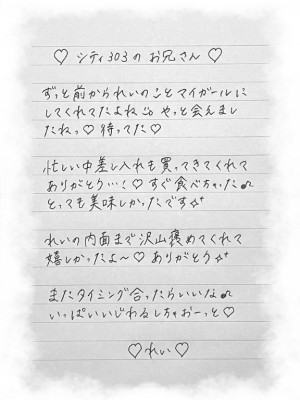 ♡ シティ303の お兄さん ♡
ずっと前かられいのことマイガールに
してくれてたよね♡。やっと会えまし
たねっ♡ 待ってた♡
忙しい中差し入れも買ってきてくれて
ありがとう…!♡ すぐ食べちゃった♪
とっても美味しかったです✧
れいの内面まで沢山褒めてくれて
嬉しかったよ〜♡ ありがとう✧
またタイミング合ったらいいな♪
いっぱいいじわるしちゃおーっと♡
♡ れい ♡